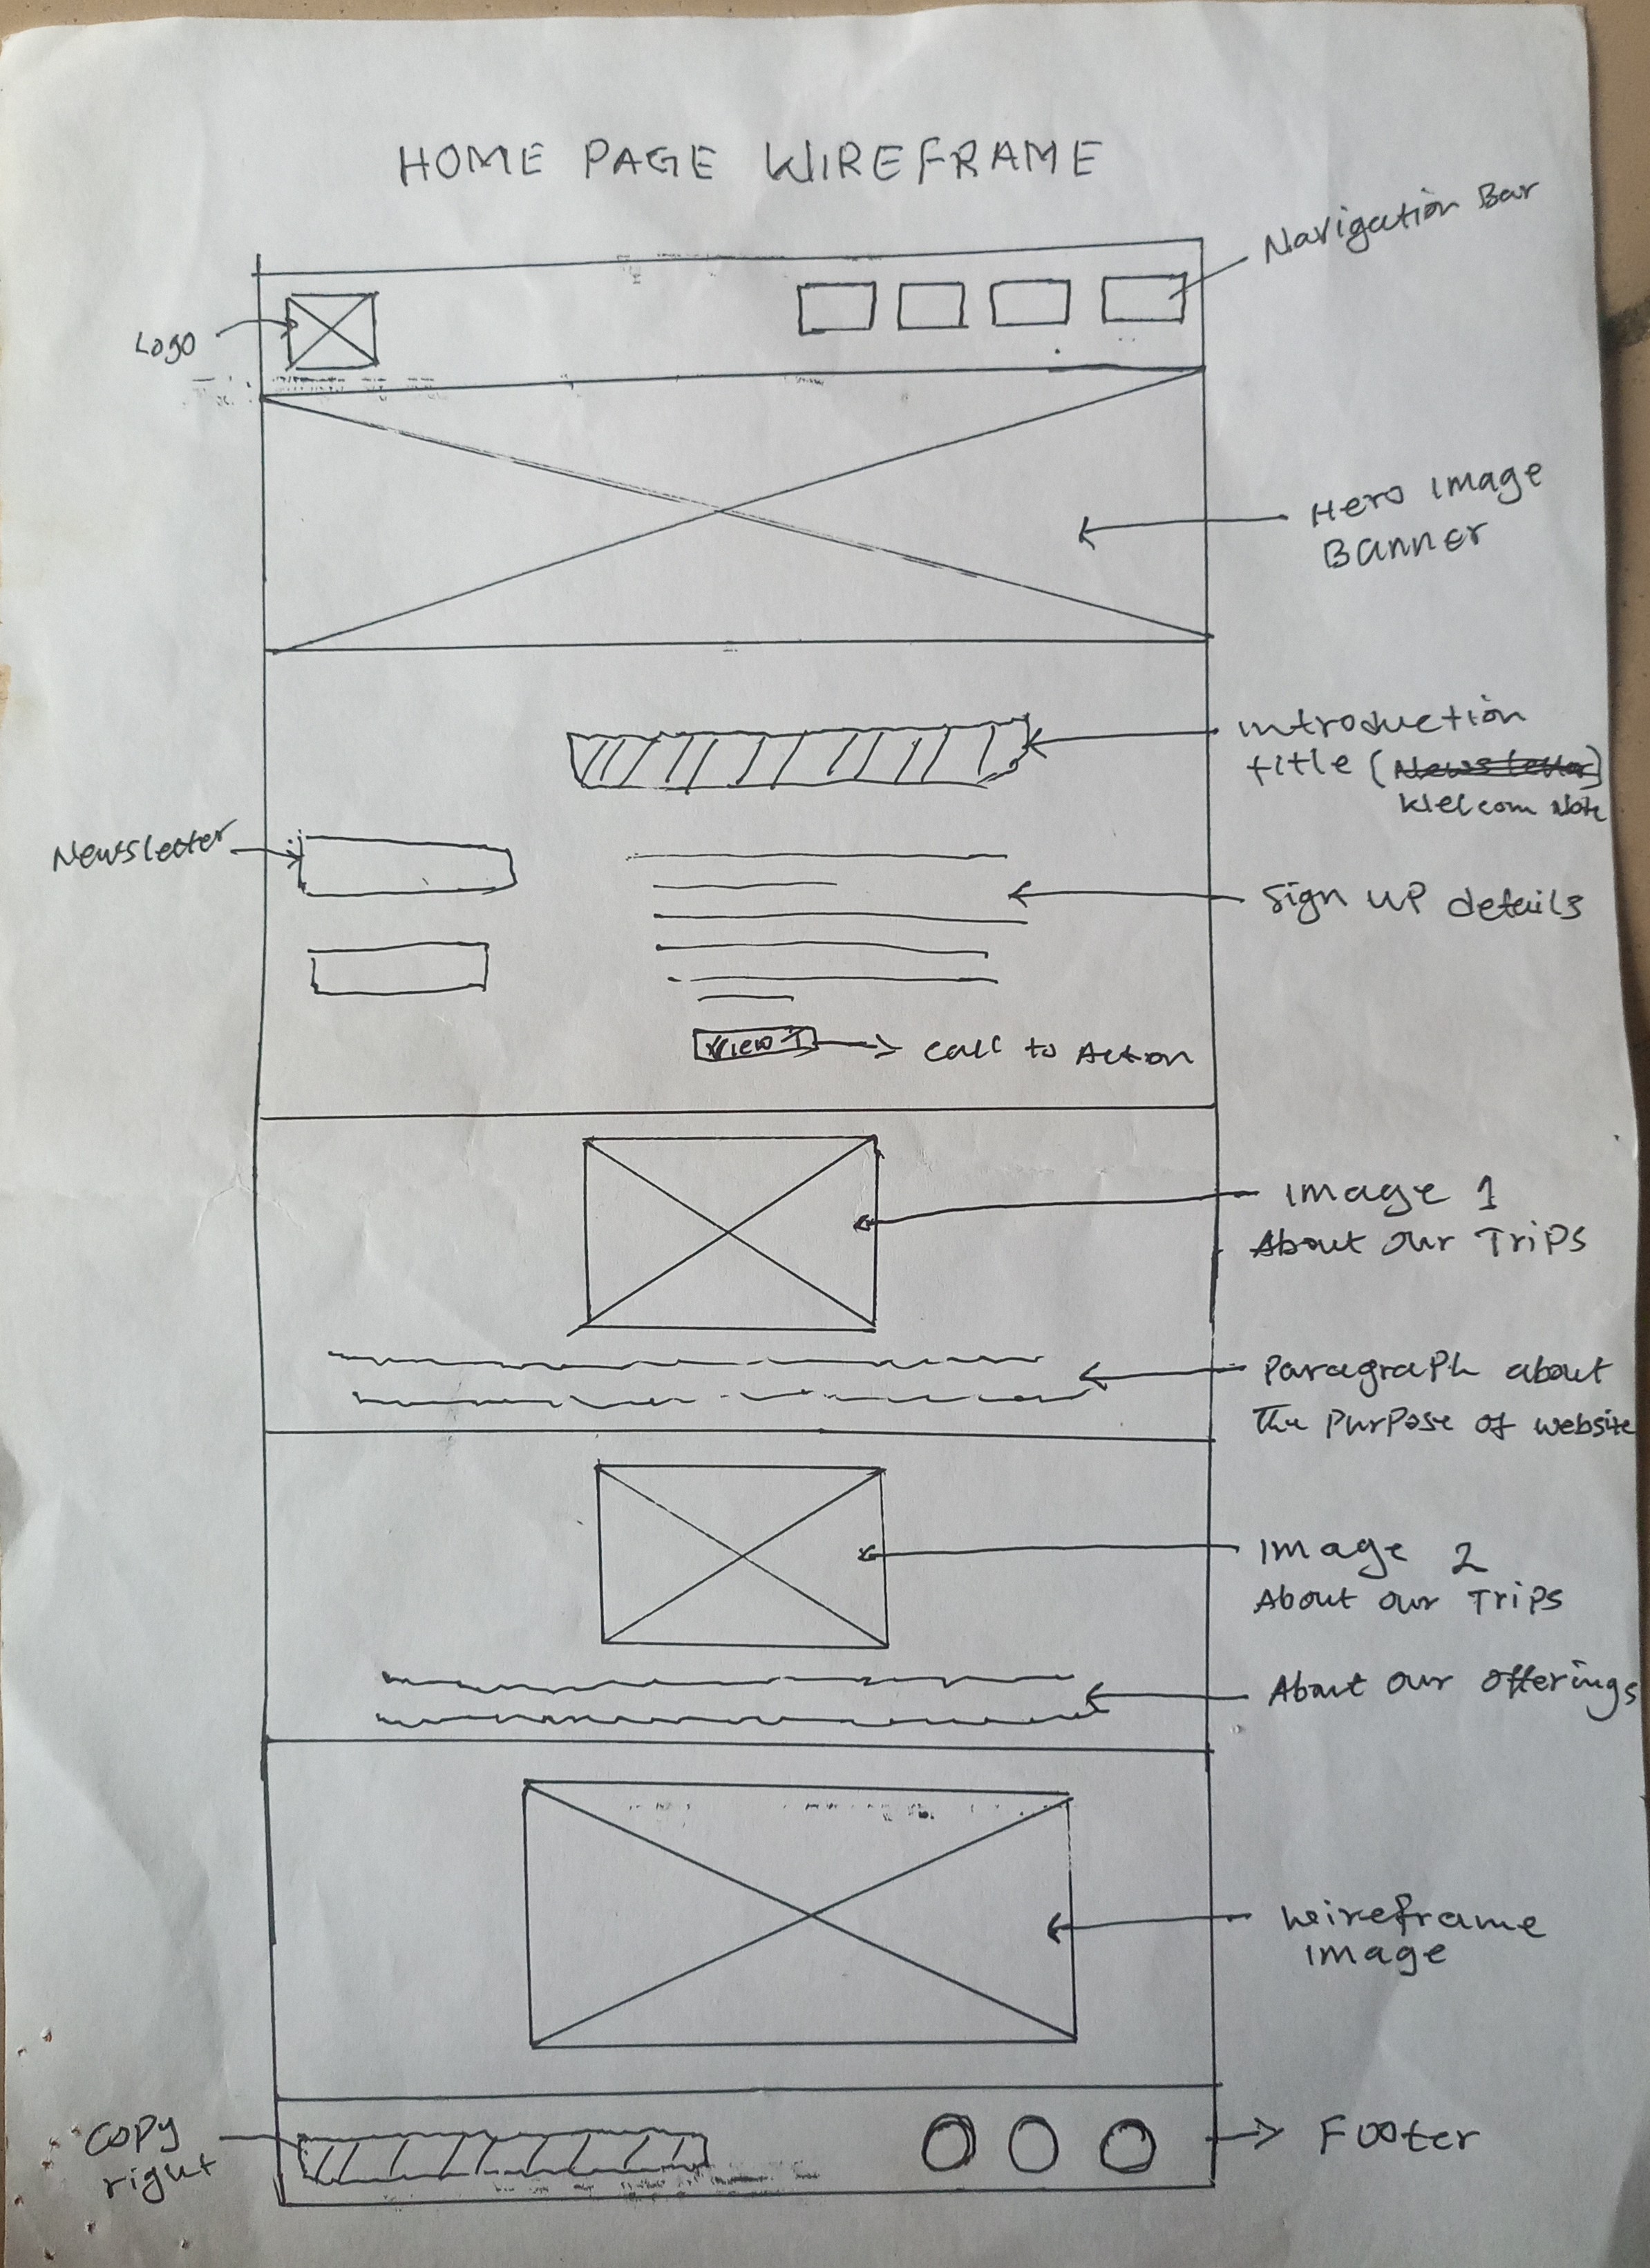 HOME PAGE WIREFRAME
Navigation Bar
Logo
Hero Image
Banner
introduction
title (Newsletter)
Welcom Note
Newsletter
Sign UP details
View
Call to Action
Image 1
About our Trips
Paragraph about
The Purpose of website
Image 2
About our Trips
About our offerings
Wireframe
image
Copy
right
Footer